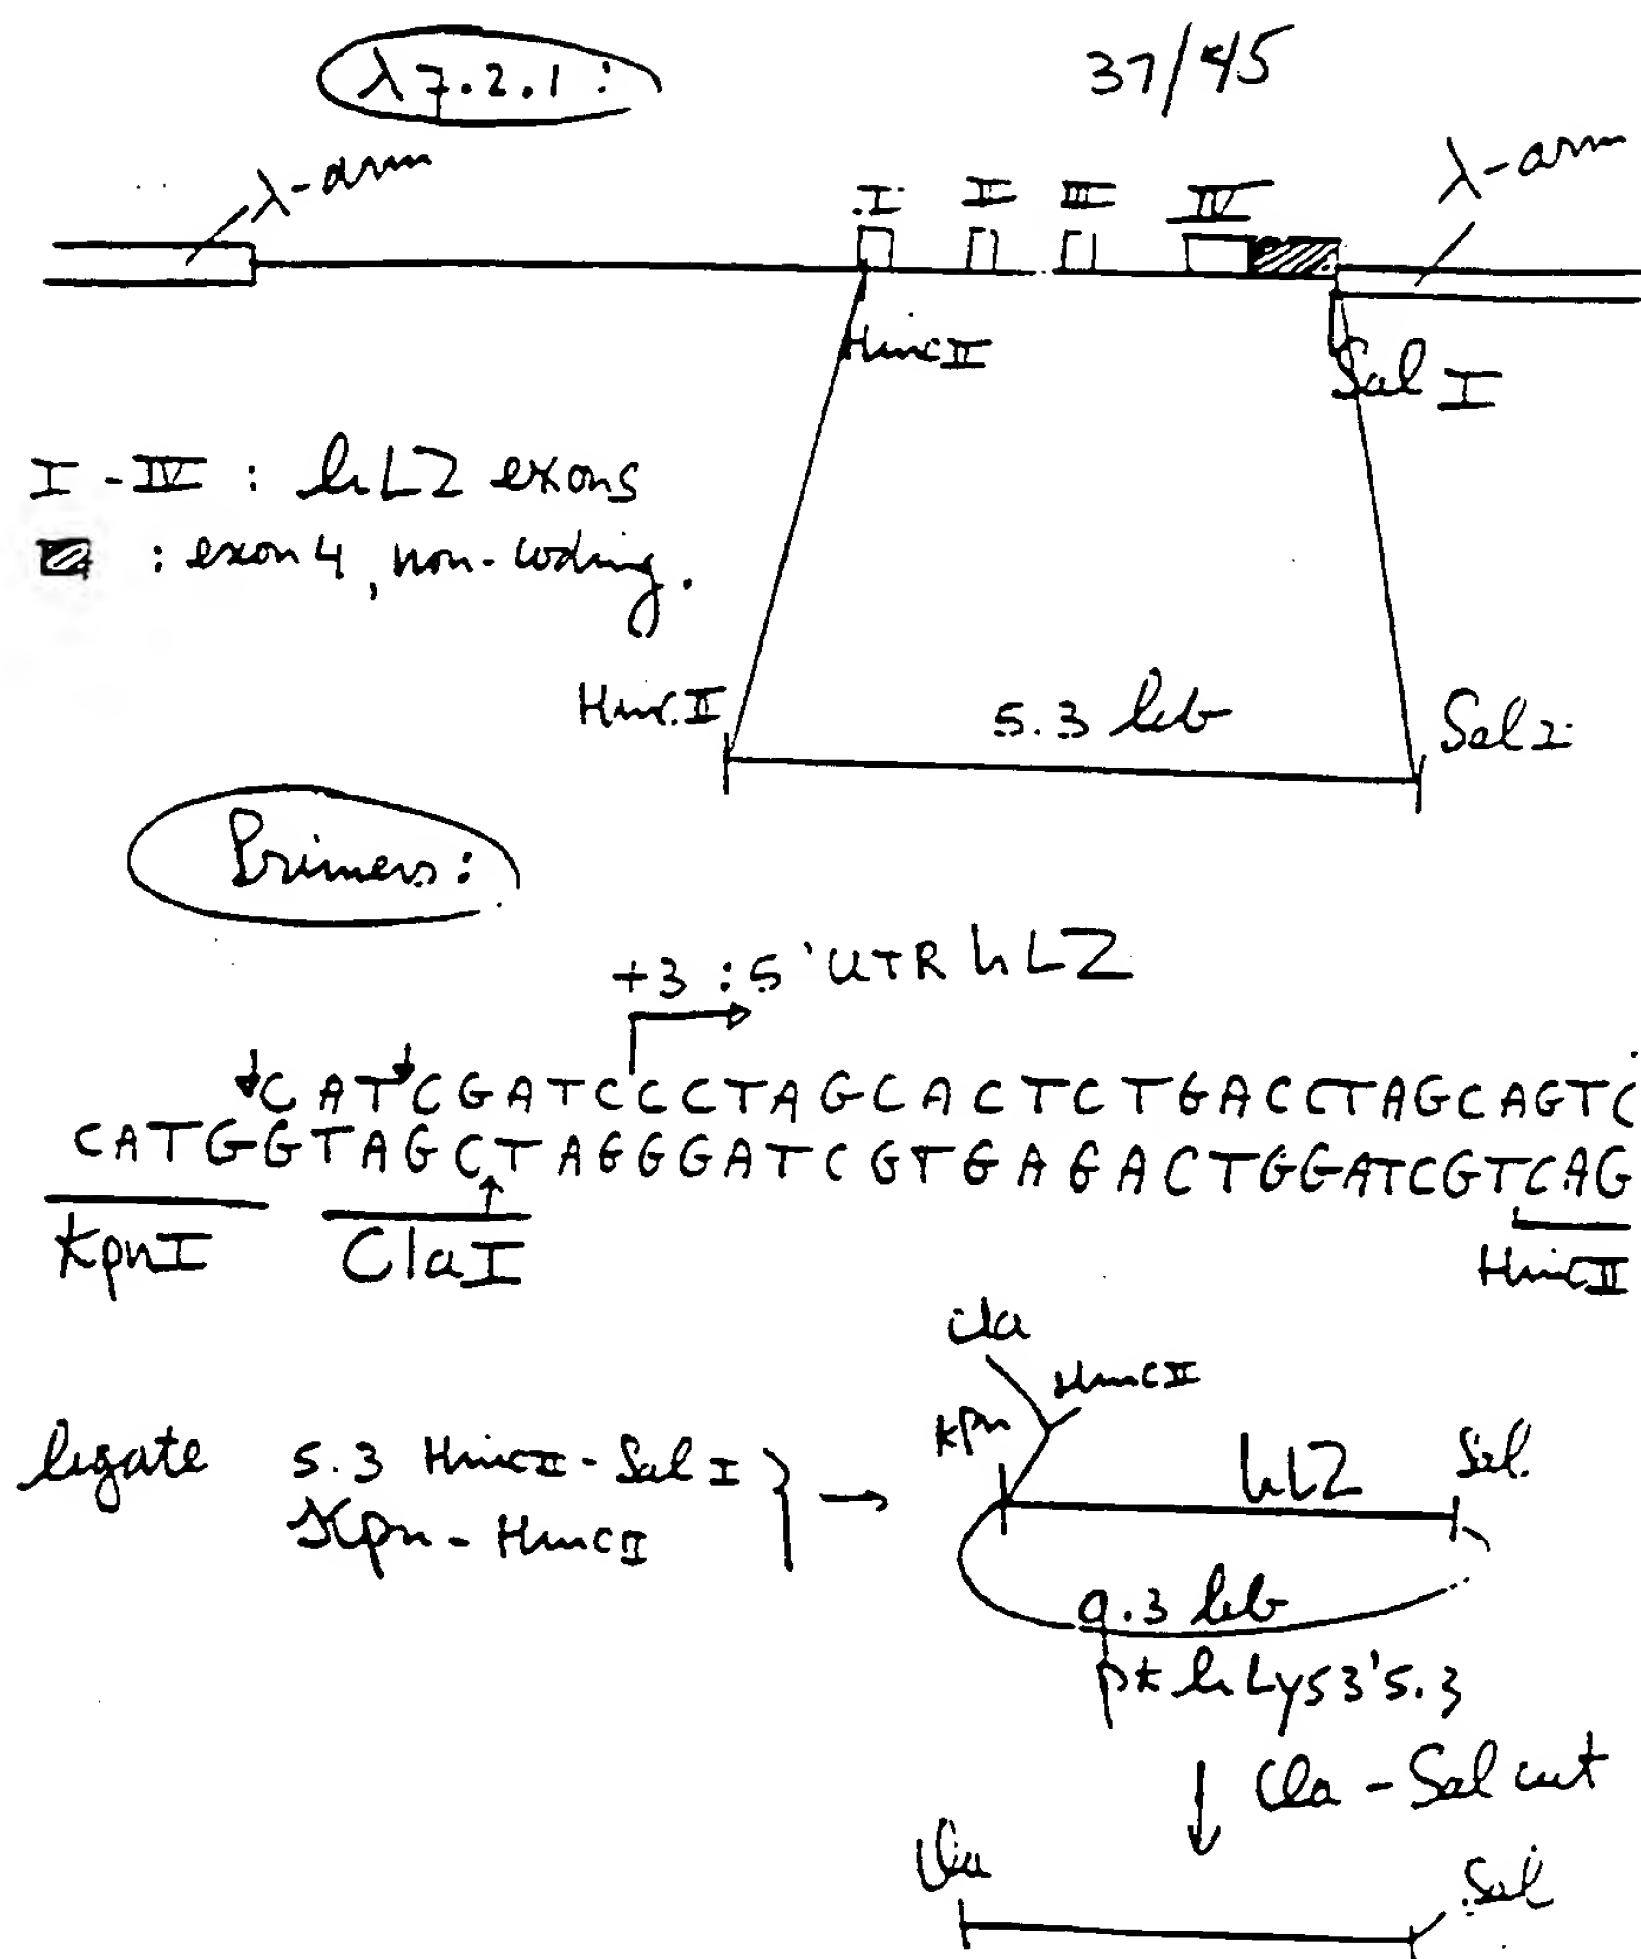 λ7.2.1:
37/45
λ-arm
λ-arm
I II III IV
HincII
Sal I
I-IV : hLZ exons
: exon 4, non-coding.
HincII 5.3 kb SalI
Primers:
+3 : 5'UTR hLZ
CATCGATCCCTAGCACTCTGACCTAGCAGTC
CATGGTAGCTAGGGATCGTGAGACTGGATCGTCAG
KpnI ClaI HincII
Cla
HincII
Kpn
ligate 5.3 HincII-Sal I → hLZ Sal
Kpn-HincII
9.3 kb
hLys3'5.3
↓ Cla-Sal cut
Cla Sal